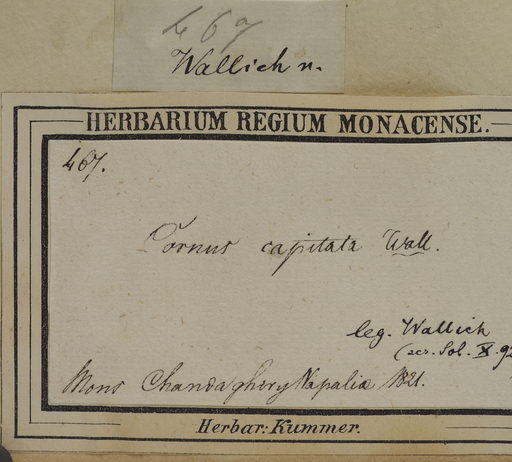 467
Wallich n.
HERBARIUM REGIUM MONACENSE.
467.
Cornus capitata Wall.
leg. Wallich
(scr. Sol. X. 92
Mons Chandaghery Napalia 1821.
Herbar: Kummer.